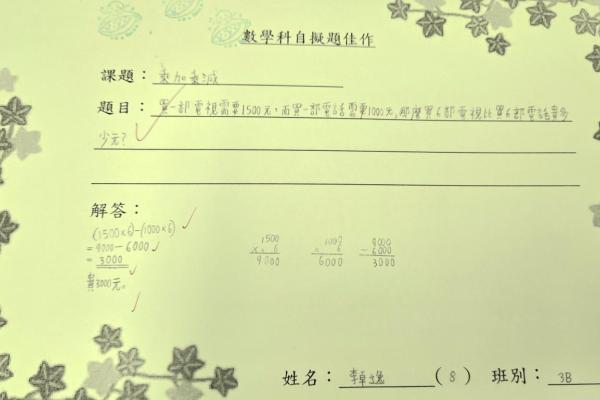 數學科自擬題佳作
課題：乘加乘減
題目：買一部電視需要1500元，而買一部電話需要1000元，那麼買6部電視比買6部電話貴多
少元？
解答：
(1500×6)-(1000×6)
= 9000-6000
= 3000
貴3000元。
1500
× 6
9000
1000
× 6
6000
9000
- 6000
3000
姓名：李卓逸 (8) 班別：3B